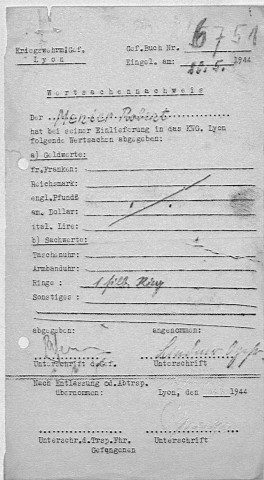 Kriegswehrm.Gef. Gef.Buch Nr. 6751
Lyon Eingel. am: 22.5. 1944
Wertsachennachweis
Der
hat bei seiner Einlieferung in das KWG. Lyon
folgende Wertsachen abgegeben:
a) Geldwerte:
fr.Franken:
Reichsmark:
engl.Pfund:
am. Dollar:
ital. Lire:
b) Sachwerte:
Taschenuhr:
Armbanduhr:
Ringe : 1 silb. Ring
Sonstiges :
abgegeben: angenommen:
Unterschrift d.Gef. Unterschrift
Nach Entlassung od.Abtrsp.
übernommen: Lyon, den 1944
Unterschr.d.Trsp.Fhr. Unterschrift
Gefangenen